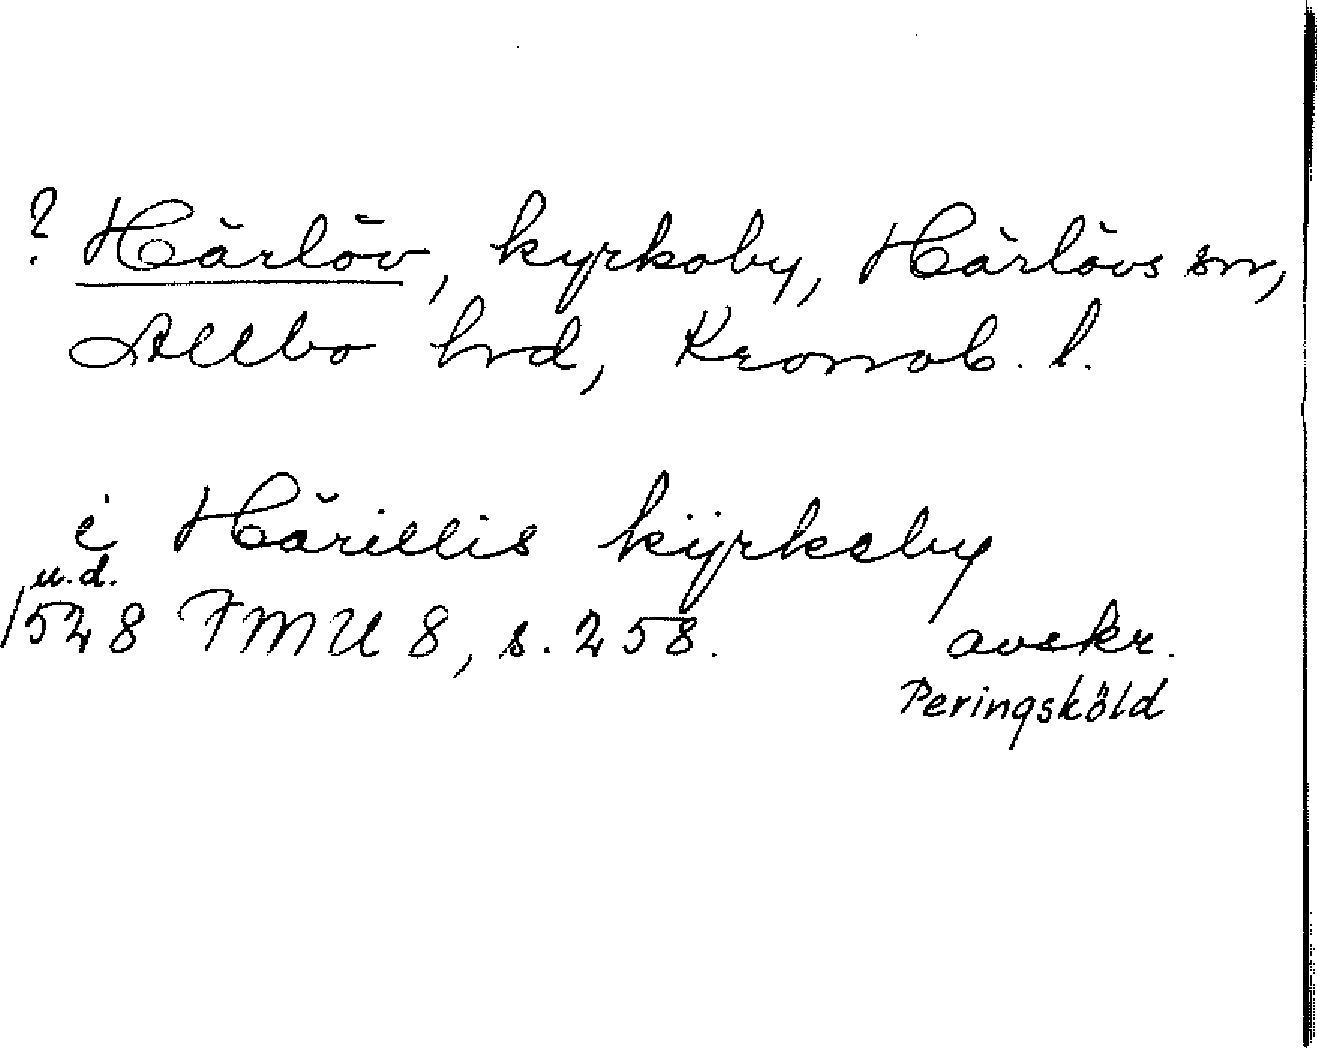 ? Härlöv, kyrkoby, Härlövs sn,
Allbo hrd, Kronob. l.
i Härillis kÿrkeby
u.d.
1528 FMU 8, s. 258. avskr.
Peringsköld